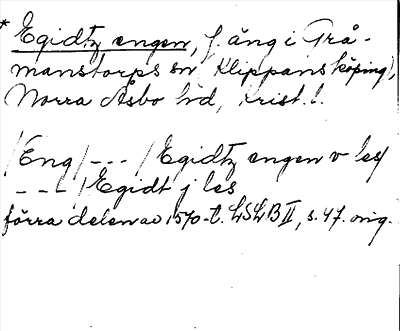 * Egidtz engen, f. äng i Grå-
manstorps sn (Klippans köping),
Norra Åsbo hd, Krist. l.
/Eng/ --- /Egidtz engen v les/
--- /Egidt j les
förra delen av 1570-t. LSLB II, s. 47. orig.